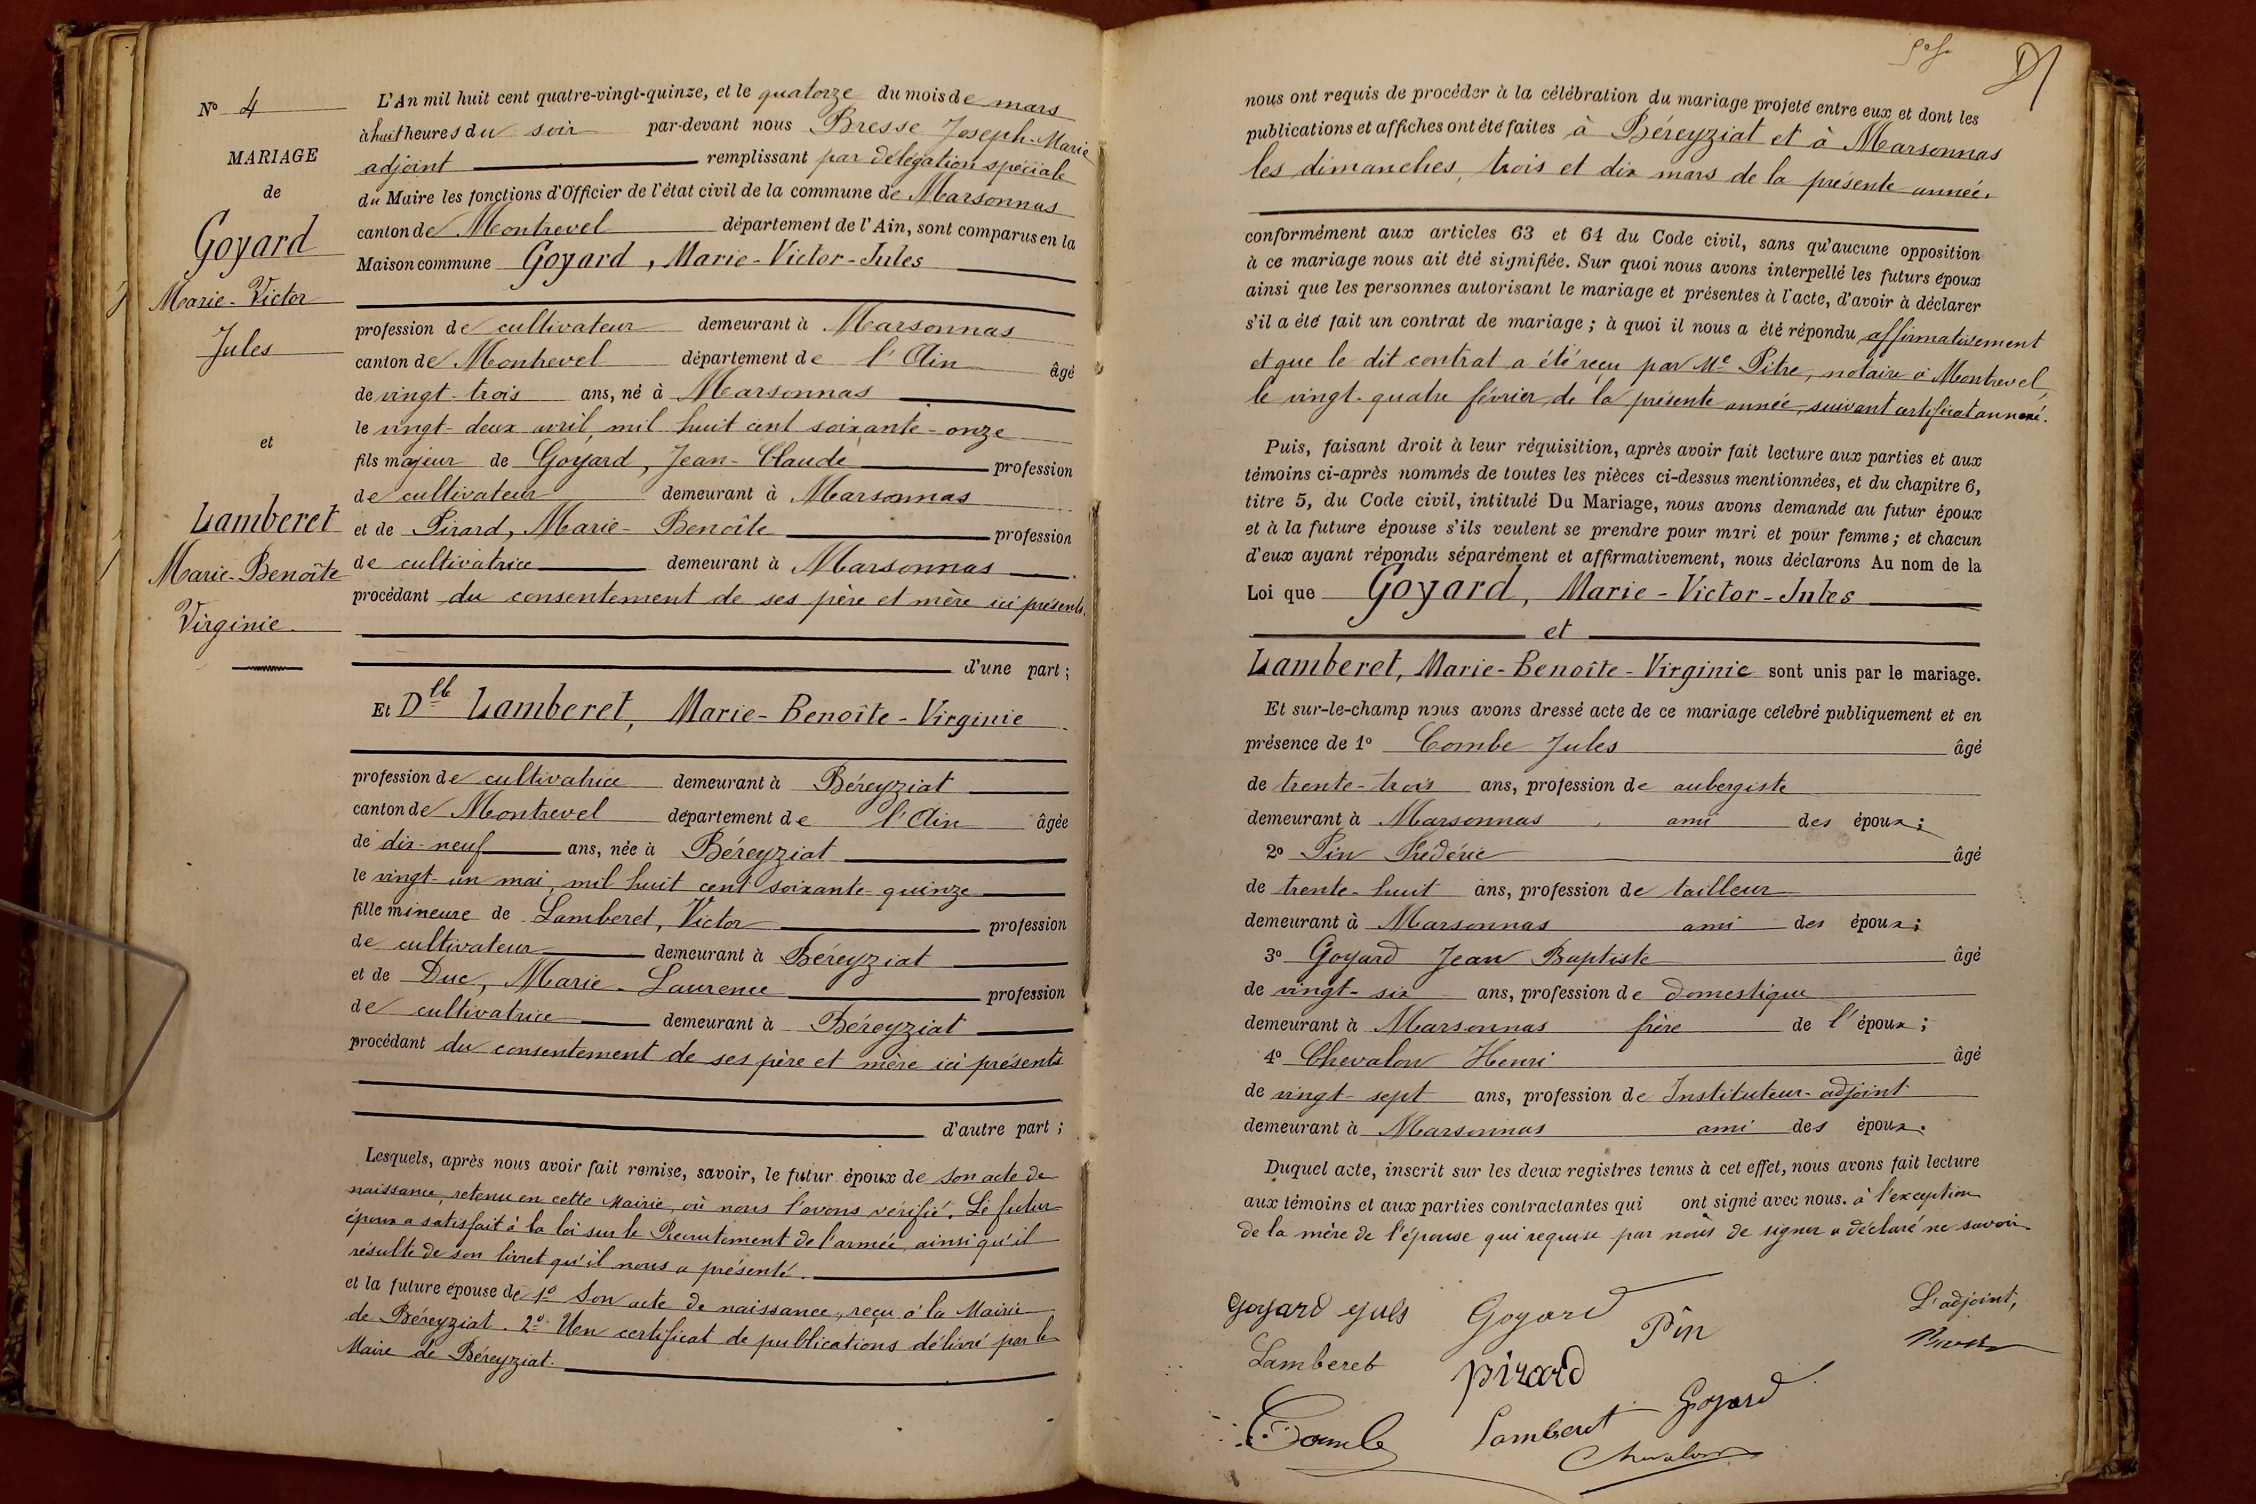 N° 4
MARIAGE
de
Goyard
Marie-Victor
Jules
et
Lamberet
Marie-Benoîte
Virginie
L'An mil huit cent quatre-vingt-quinze, et le quatorze du mois de mars
à huit heures du soir par-devant nous Bresse Joseph-Marie
adjoint remplissant par délégation spéciale
du Maire les fonctions d'Officier de l'état civil de la commune de Marsonnas
canton de Montrevel département de l'Ain, sont comparus en la
Maison commune Goyard, Marie-Victor-Jules
profession de cultivateur demeurant à Marsonnas
canton de Montrevel département de l'Ain âgé
de vingt-trois ans, né à Marsonnas
le vingt-deux avril, mil huit cent soixante-onze
fils majeur de Goyard, Jean-Claude profession
de cultivateur demeurant à Marsonnas
et de Pirard, Marie-Benoîte profession
de cultivatrice demeurant à Marsonnas
procédant du consentement de ses père et mère ici présents.
d'une part;
Et Dlle Lamberet, Marie-Benoîte-Virginie
profession de cultivatrice demeurant à Béreyziat
canton de Montrevel département de l'Ain âgée
de dix-neuf ans, née à Béreyziat
le vingt-un mai, mil huit cent soixante-quinze
fille mineure de Lamberet, Victor profession
de cultivateur demeurant à Béreyziat
et de Duc, Marie-Laurence profession
de cultivatrice demeurant à Béreyziat
procédant du consentement de ses père et mère ici présents
d'autre part;
Lesquels, après nous avoir fait remise, savoir, le futur époux de son acte de
naissance, retenu en cette Mairie, où nous l'avons vérifié. Le futur
époux a satisfait à la loi sur le Recrutement de l'armée, ainsi qu'il
résulte de son livret qu'il nous a présenté.
et la future épouse de 1° Son acte de naissance, reçu à la Mairie
de Béreyziat. 2° Un certificat de publications délivré par le
Maire de Béreyziat.
nous ont requis de procéder à la célébration du mariage projeté entre eux et dont les
publications et affiches ont été faites à Béreyziat et à Marsonnas
les dimanches, trois et dix mars de la présente année.
conformément aux articles 63 et 64 du Code civil, sans qu'aucune opposition
à ce mariage nous ait été signifiée. Sur quoi nous avons interpellé les futurs époux
ainsi que les personnes autorisant le mariage et présentes à l'acte, d'avoir à déclarer
s'il a été fait un contrat de mariage; à quoi il nous a été répondu affirmativement
et que le dit contrat a été reçu par Me Pitre, notaire à Montrevel,
le vingt-quatre février de la présente année, suivant certificat annexé.
Puis, faisant droit à leur réquisition, après avoir fait lecture aux parties et aux
témoins ci-après nommés de toutes les pièces ci-dessus mentionnées, et du chapitre 6,
titre 5, du Code civil, intitulé Du Mariage, nous avons demandé au futur époux
et à la future épouse s'ils veulent se prendre pour mari et pour femme; et chacun
d'eux ayant répondu séparément et affirmativement, nous déclarons Au nom de la
Loi que Goyard, Marie-Victor-Jules
et
Lamberet, Marie-Benoîte-Virginie sont unis par le mariage.
Et sur-le-champ nous avons dressé acte de ce mariage célébré publiquement et en
présence de 1° Combe Jules âgé
de trente-trois ans, profession de aubergiste
demeurant à Marsonnas ami des époux;
2° Pin Frédéric âgé
de trente-huit ans, profession de tailleur
demeurant à Marsonnas ami des époux;
3° Goyard Jean Baptiste âgé
de vingt-six ans, profession de domestique
demeurant à Marsonnas frère de l'époux;
4° Chevalon Henri âgé
de vingt-sept ans, profession de Instituteur-adjoint
demeurant à Marsonnas ami des époux.
Duquel acte, inscrit sur les deux registres tenus à cet effet, nous avons fait lecture
aux témoins et aux parties contractantes qui ont signé avec nous. à l'exception
de la mère de l'épouse qui requise par nous de signer a déclaré ne savoir.
Goyard Jules Goyard Pin L'adjoint,
Lamberet pirard Bresse
Combe Lamberet Goyard
Chevalon